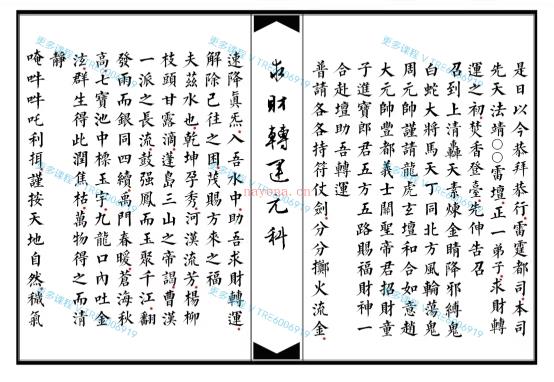 是日以今恭拜恭行雷霆都司本司
先天法靖○○雷壇正一弟子求財轉
運之初焚香登臺先伸告召
召到上清轟天素煉金睛降邪縛鬼
白蛇大將馬天丁同北方風輪蕩鬼
周元帥謹請龍虎玄壇和合如意趙
大元帥都義士關聖帝君招財童
子進寶郎君五方五路賜福財神一
合赴壇助吾轉運
普請各各持符仗劍分分擲火流金
求財轉運元科
速降真炁入吾水中助吾求財轉運
解除已往之困茂賜方來之福
夫茲水也乾坤孕秀河漢流芳楊柳
枝頭甘露滴蓬島三山之帝謁曹漢
一派之長流鼓強風而玉聚千江翻
發雨而銀同四續萬門春暖蒼海秋
高七寶池中標玉字九龍口內吐金
泫群生得此潤焦枯萬物得之而清
靜
唵吽吽吒利挕謹按天地自然穢氣
更多课程 V TRE6006919
更多课程 V TRE6006919
nayona.cn